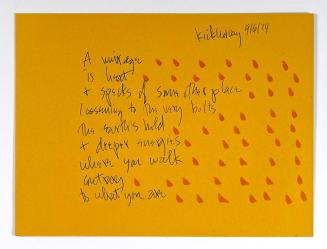 9/6/74
A mirage
is heat
+ specks of some other place
loosening to the very bolts
the earth's hold
+ deeper energies
where you walk
out
to what you are